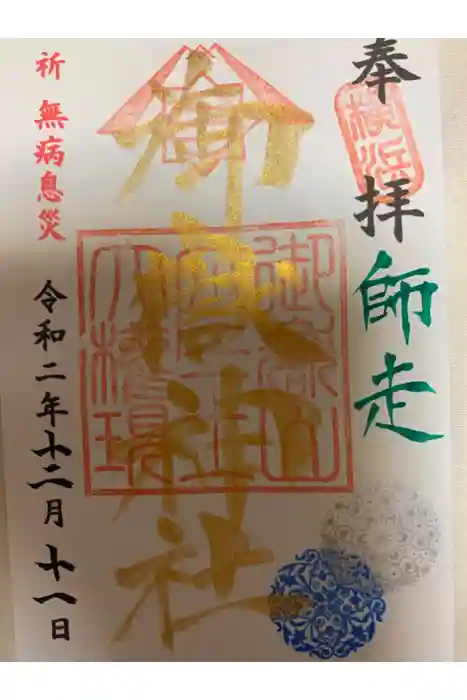 奉拝
横浜
師走
御嶽神社
御嶽山
座王
大権現
祈 無病息災
令和二年十二月十一日